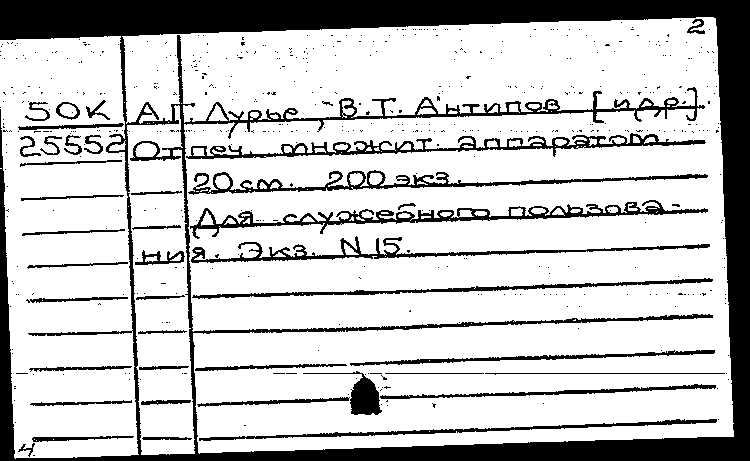 2
50К А.Г. Лурье, В.Т. Антипов [и др.].
25552 Отпеч. множит. аппаратом.
20 см. 200 экз.
Для служебного пользова-
ния. Экз. N 15.
4